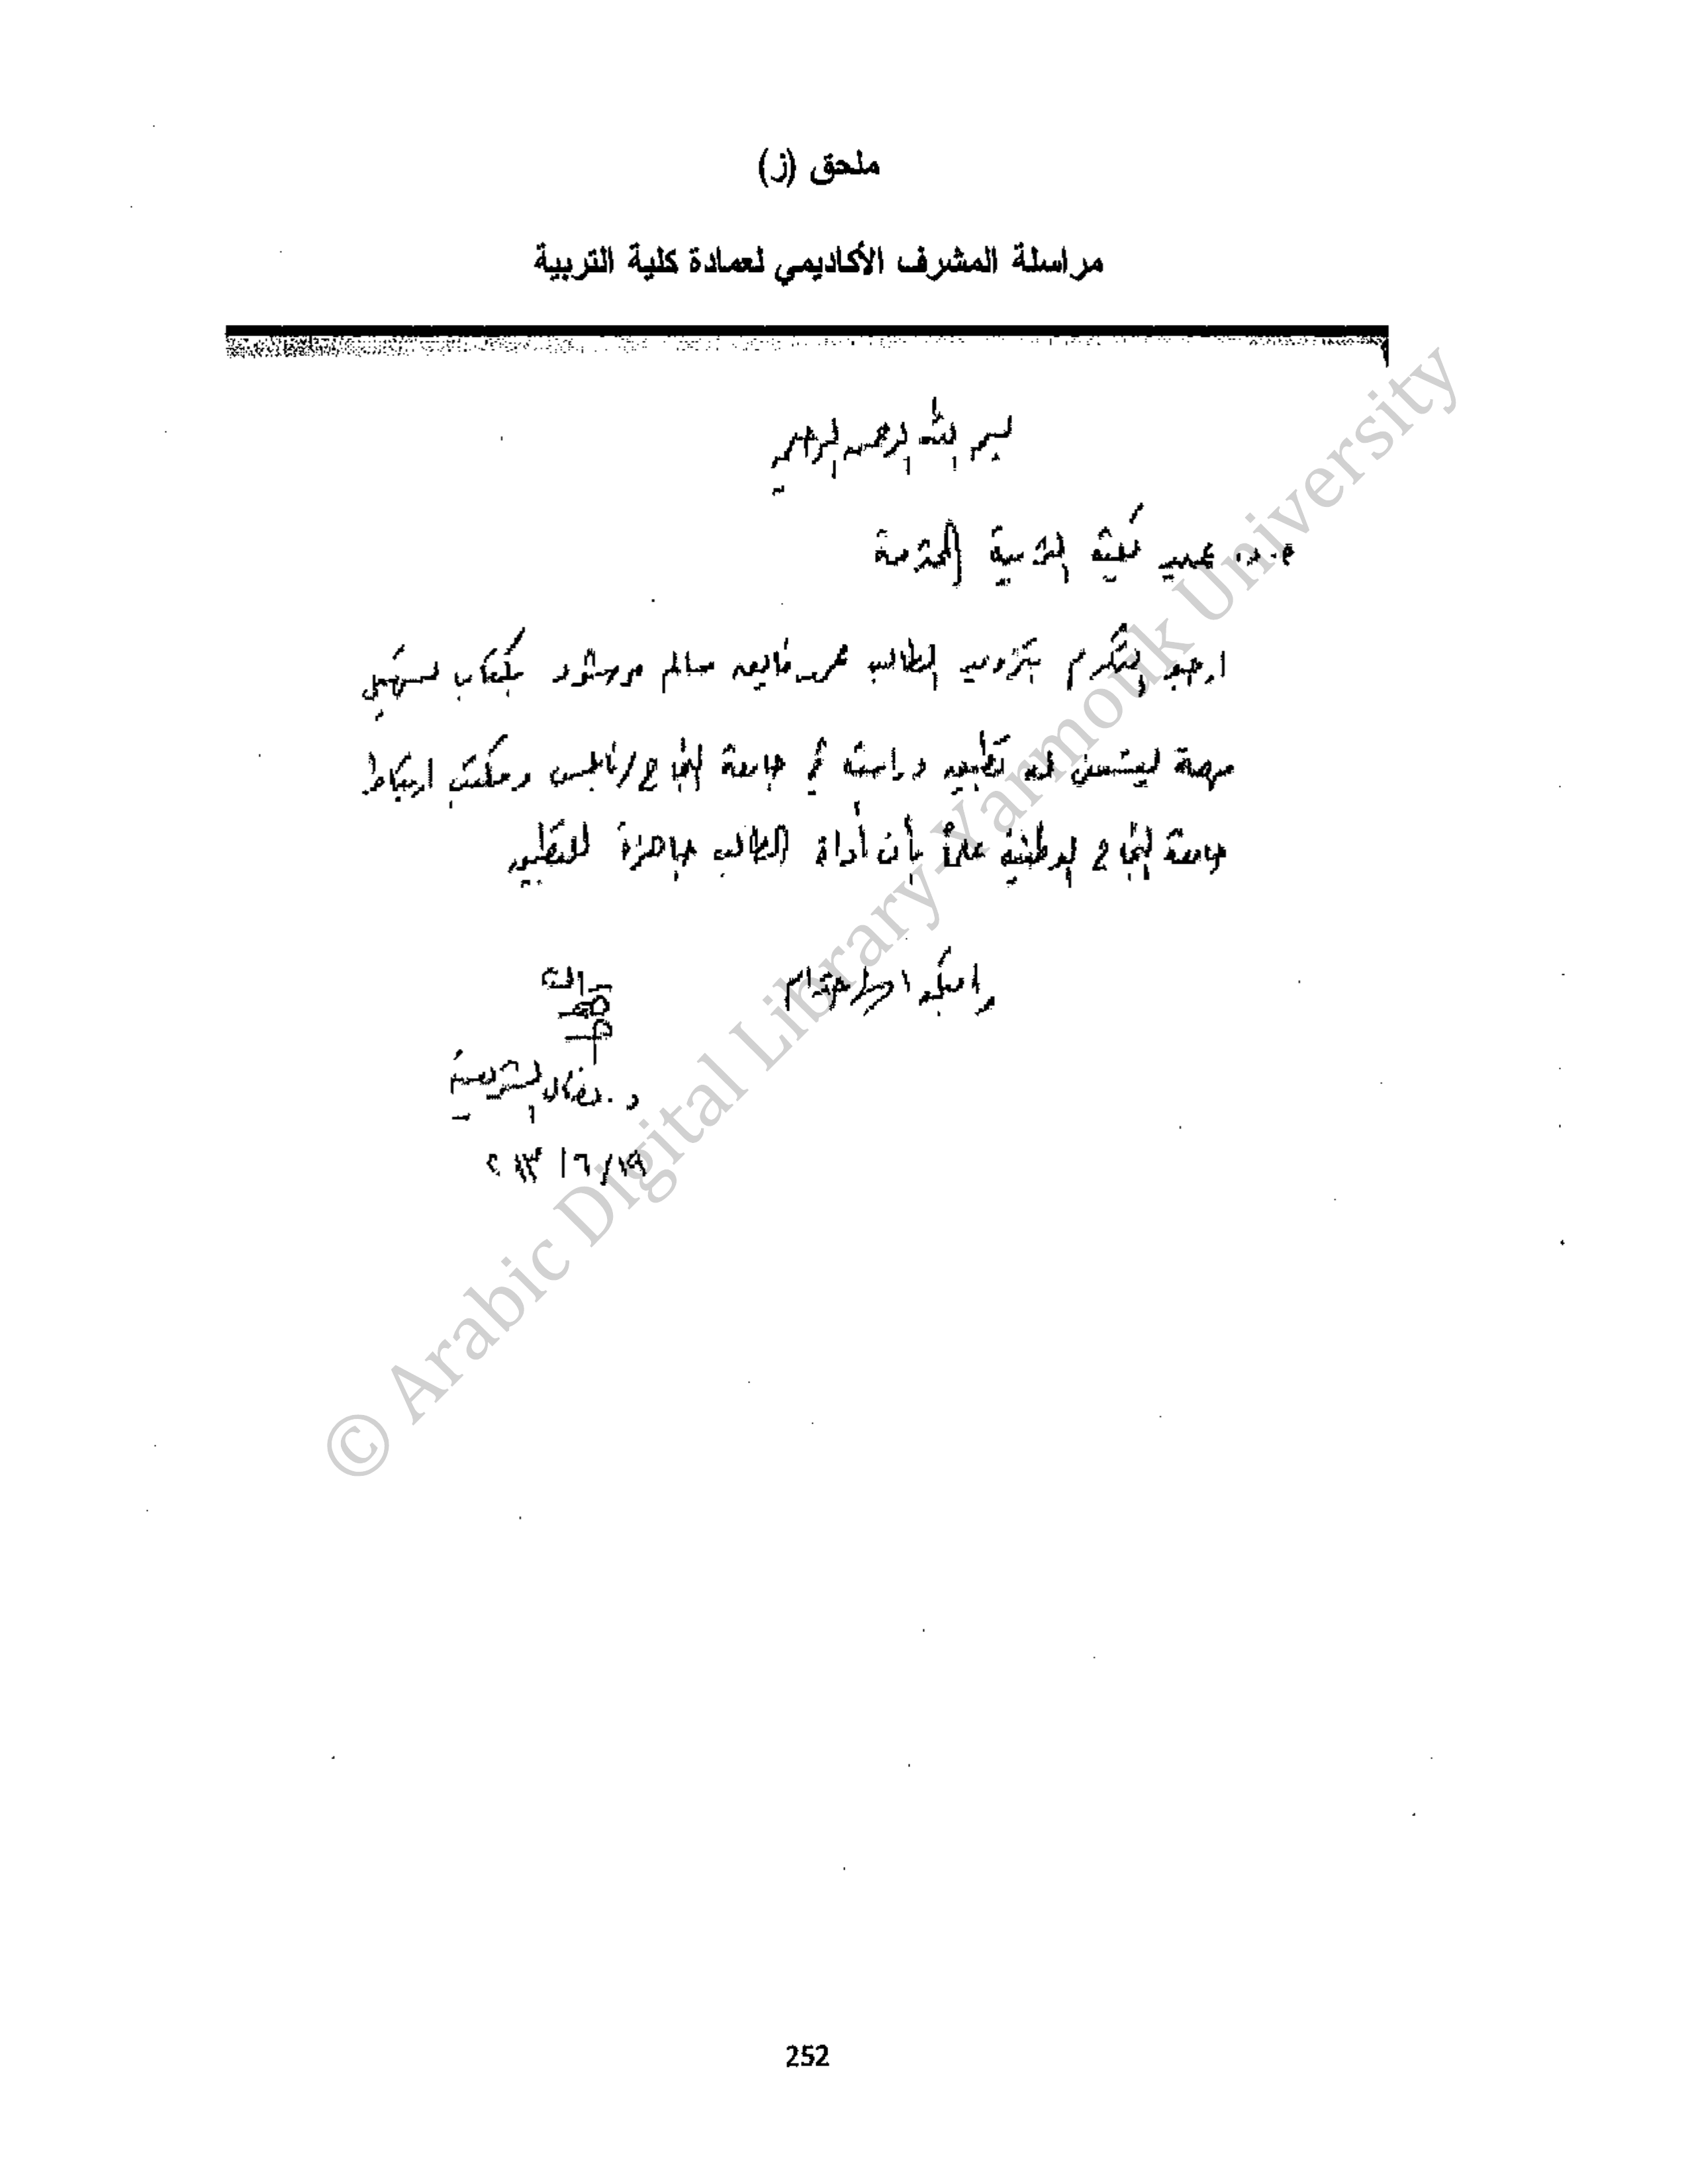 ملحق (ز)
مراسلة المشرف الأكاديمي لعمادة كلية التربية
بسم الله الرحمن الرحيم
أ.د. عميد كلية التربية المحترمة
ارجو التكرم بتزويد الطالب محمد فايق سالم مرشود بكتاب تسهيل
مهمة ليتسنى له تطبيق دراسته في جامعة النجاح/نابلس ومكتب ارتباط
جامعة النجاح الوطنية علماً بأن أداة الطالب جاهزة للتطبيق
واقبلوا الاحترام
د. نضال الشريفين
١٩/٦/٢٠١٣
© Arabic Digital Library-Yarmouk University
252